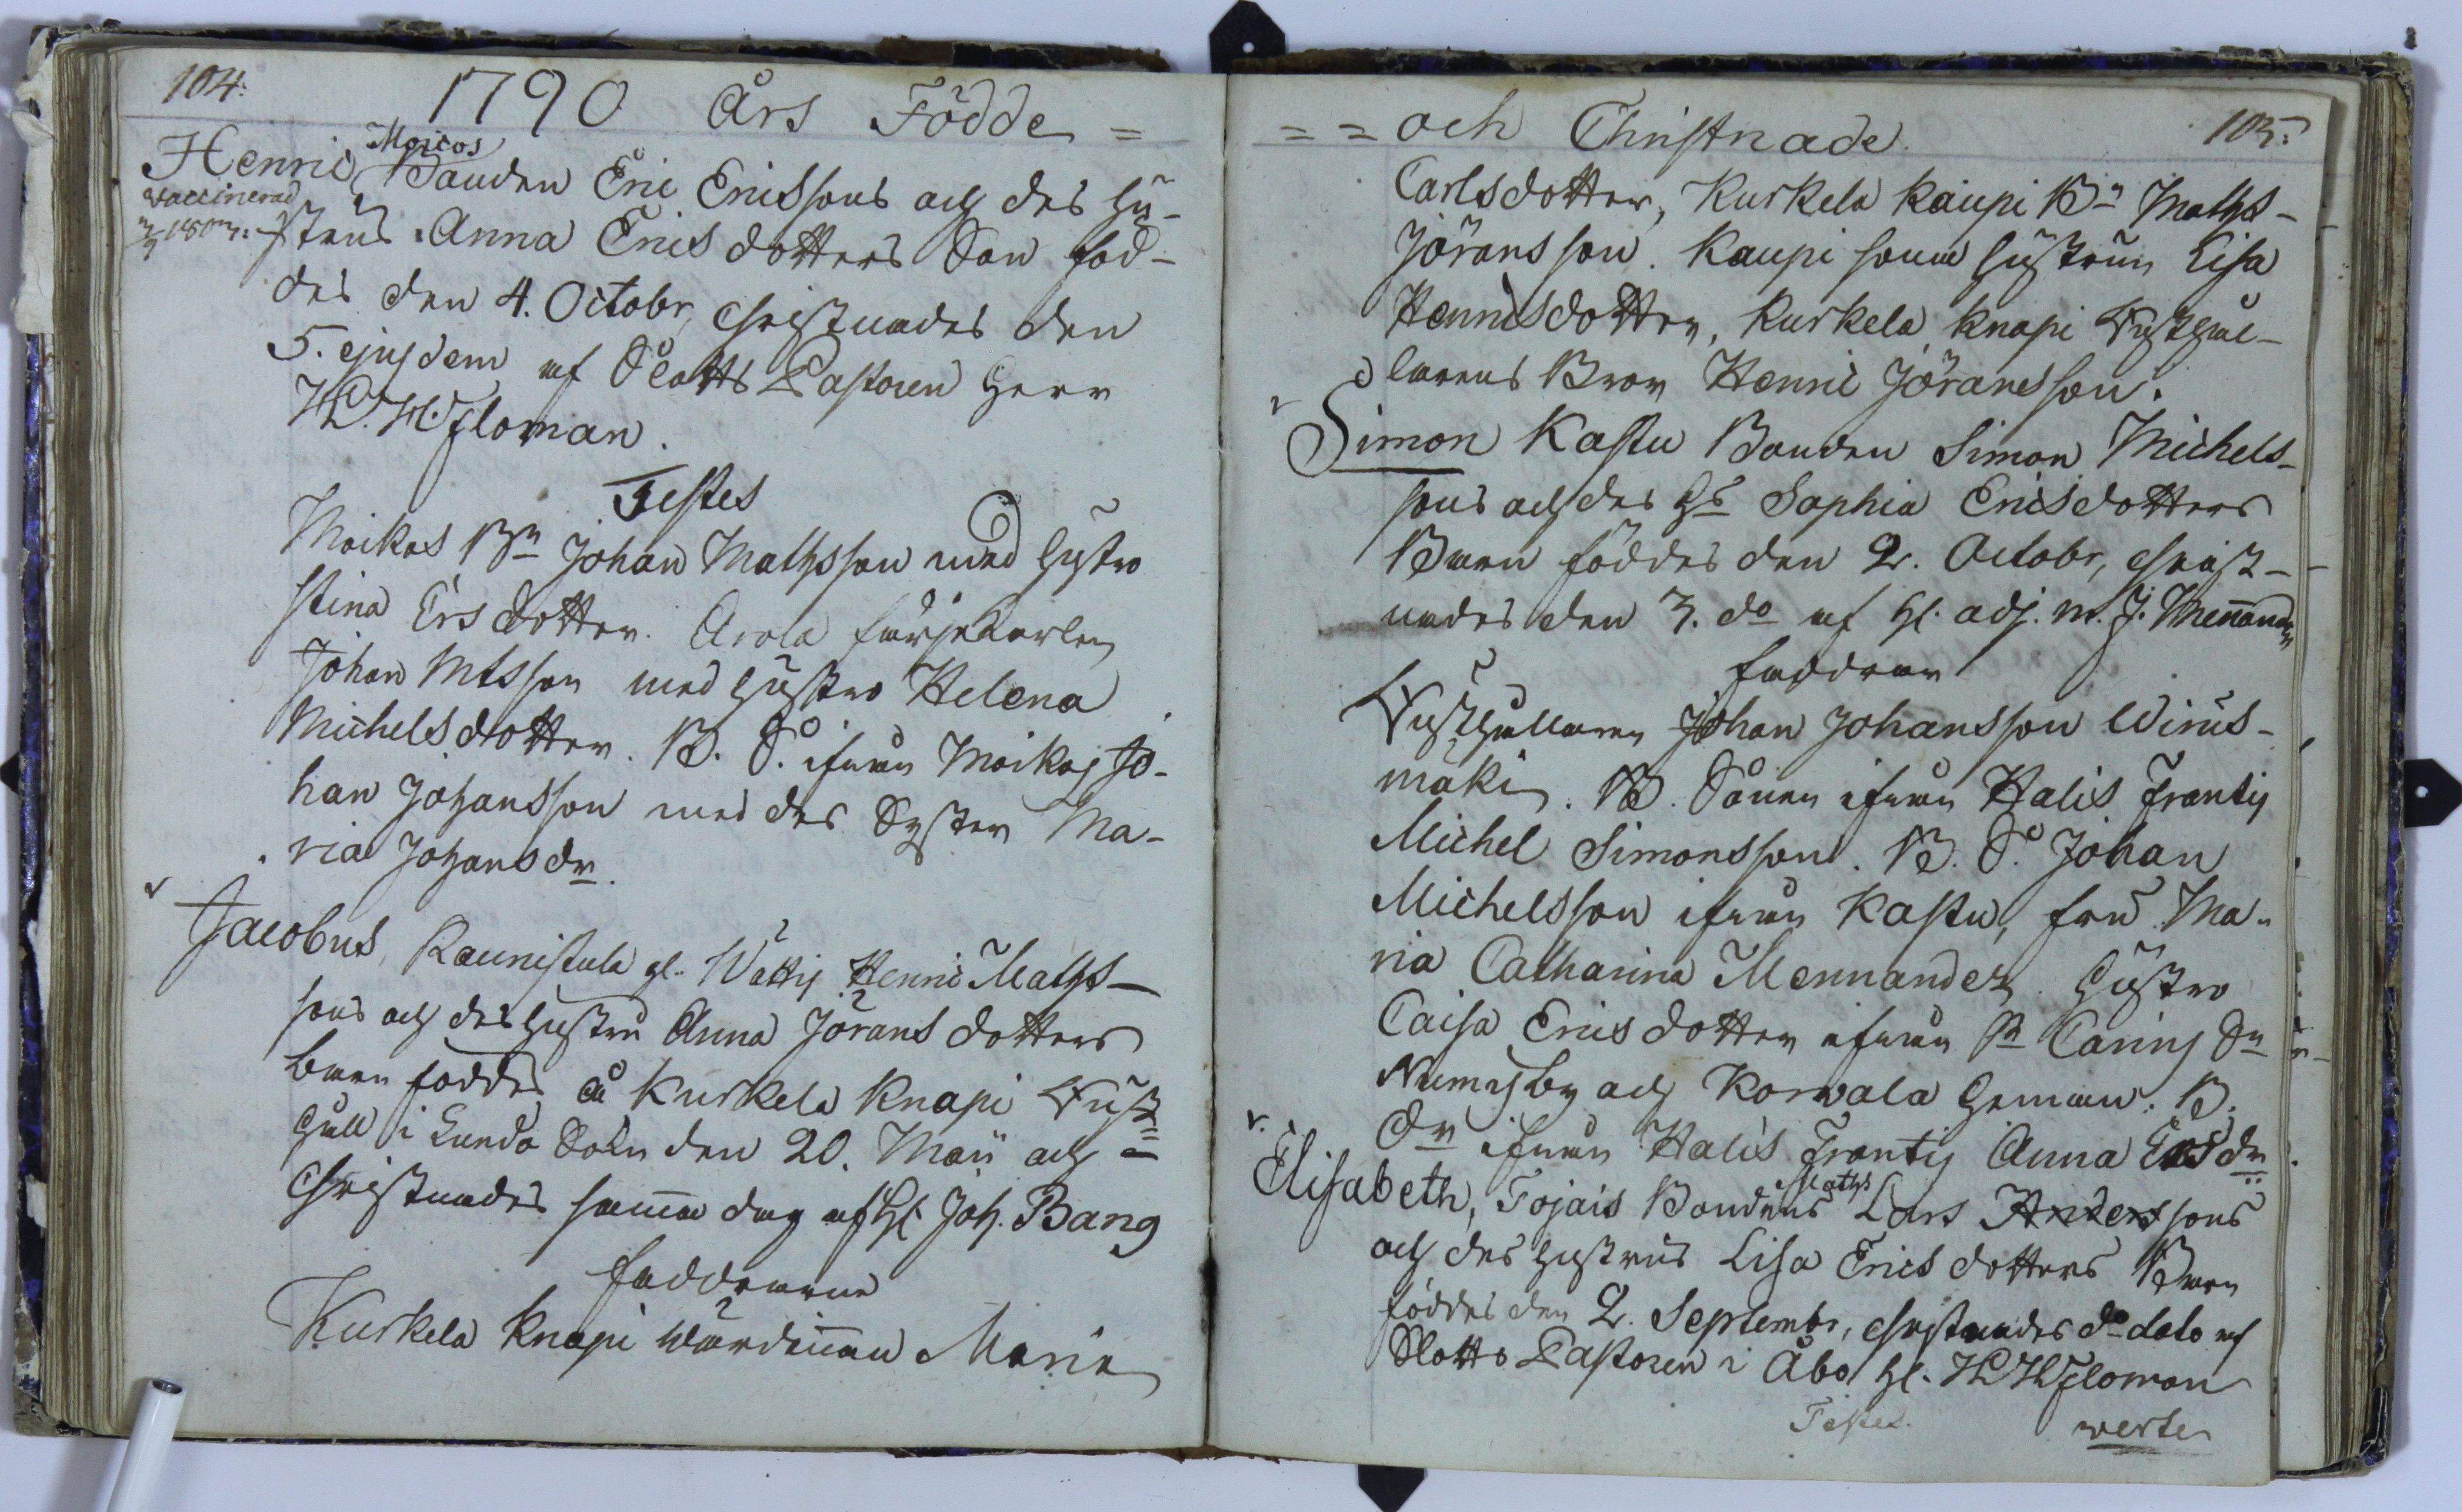 104.
1790 Års Födde =
Moicos
Henric, Bonden Eric Ericssons och des Hu-
vaccinerad
strus Anna Ericsdotters Son föd-
des den 4. Octobr, christnades den
5. ejusdem af Slotts Pastoren Herr
H. H. Floman.
Testes
Moikos Bn Johan Mathsson med hustro
Stina Ersdotter. Arola färjekarlen
Johan Mtsson med hustro Helena
Michelsdotter. B. S. ifrån Moikos Jo-
han Johansson med des Syster Ma-
ria Johansdr.
Jacobus, Raunistula gl. Wättis Henric Maths-
sons och des hustru Anna Jörans dotters
barn föddes å Kurkela Knapi Rust-
håll i Lundo Sokn den 20. Maii och
Christnades samma dag af H. Joh. Bang
Faddrarne
Kurkela Knapi wärdinnan Maria
= = och Christnade. 105.
Carlsdotter, Kurkela Kaupi Bn Maths-
Jöransson. Kaupi sonn hustrun Lisa
Henricsdotter, Kurkela Knapi Rusthål-
larens Bror Henric Jöransson.
Simon Kastu Bonden Simon Michels-
sons och des Hs Sophia Ericsdotters
Barn föddes den 2. Octobr, christ-
nades den 3. do af H. adj. m. J. Mennander
Faddrar
Rusthållaren Johan Johansson Wirus-
mäki. B. Sånen ifrån Halis Frantis
Michel Simonsson. B. S. Johan
Michelsson ifrån Kastu, fru Ma-
ria Catharina Mennander, hustro
Caisa Ericsdotter ifrån St Carins Sn
Numisby och Korvala hemman. B.
Dr ifrån Halis Frantis Anna Ersdr
Maths
Elisabeth, Tojais Bondens Lars Anderssons
och des hustrus Lisa Erics dotters Barn
föddes den 2. Septembr, christnades do dato af
Slotts Pastoren i Åbo H. H H Floman
Testes. verte